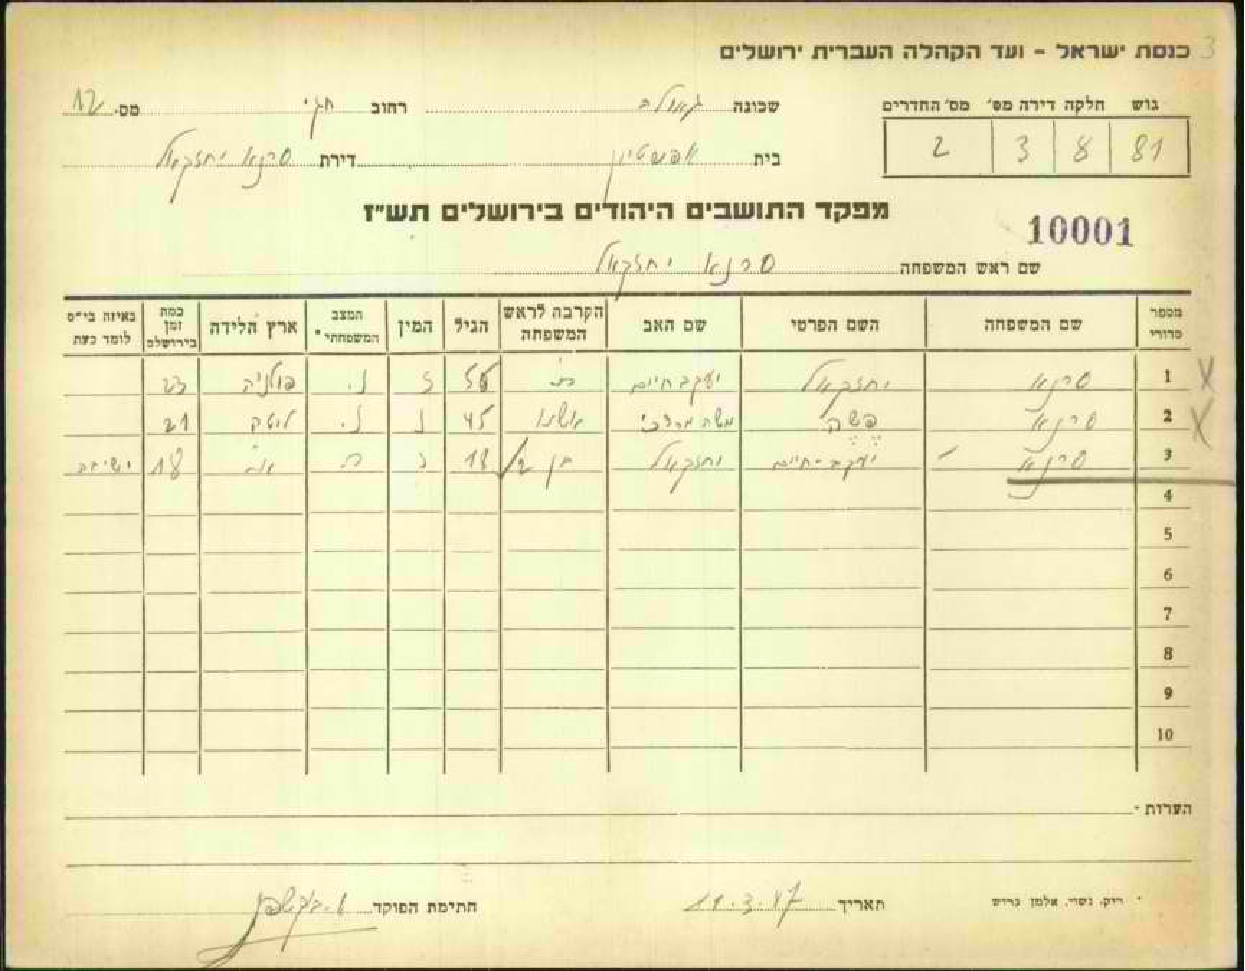 כנסת ישראל - ועד הקהלה העברית ירושלים 3
גוש חלקה דירה מס' מס' החדרים
81 8 3 2
שכונה גאולה רחוב חגי מס. 12
בית אפשטיין דירת סרנא יחזקאל
מפקד התושבים היהודים בירושלים תש"ז
10001
שם ראש המשפחה סרנא יחזקאל
מספר סדורי שם המשפחה השם הפרטי שם האב הקרבה לראש המשפחה הגיל המין המצב המשפחתי * ארץ הלידה כמה זמן בירושלם באיזה בי"ס לומד כעת
1 סרנא יחזקאל יעקב חיים 56 ז נ. פולניה 23
2 סרנא פשה משה מרדכי אשתו 45 נ נ. ליטה 21
3 סרנא יעקב-חיים יחזקאל בן 18 ז ר א"י 18 ישיבה
4
5
6
7
8
9
10
הערות
חתימת הפוקד
תאריך 11.3.47
* ריק, נשוי, אלמן גרוש